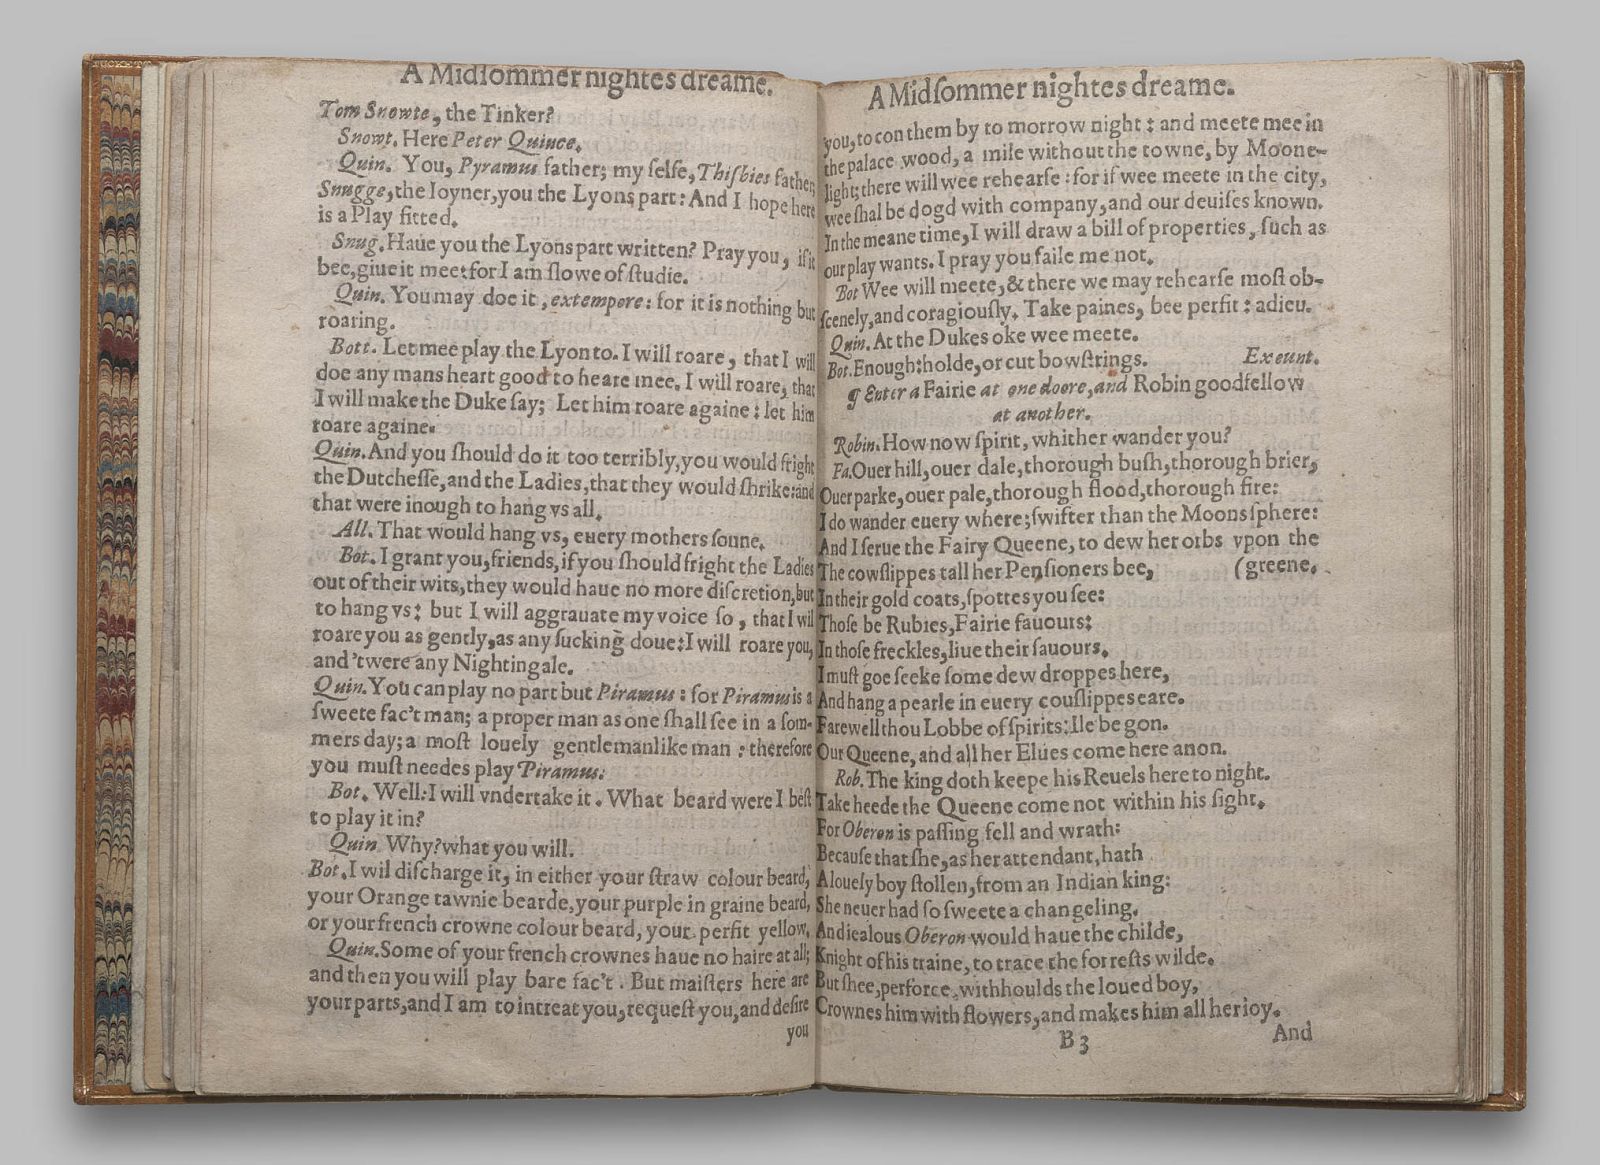 A Midſommer nightes dreame.
Tom Snowte, the Tinker?
Snowt. Here Peter Quince.
Quin. You, Pyramus father; my ſelfe, Thiſbies father;
Snugge, the Ioyner, you the Lyons part: And I hope here
is a Play fitted.
Snug. Haue you the Lyons part written? Pray you, if it
bee, giue it mee: for I am ſlowe of ſtudie.
Quin. You may doe it, extempore: for it is nothing but
roaring.
Bott. Let mee play the Lyon to. I will roare, that I will
doe any mans heart good to heare mee. I will roare, that
I will make the Duke ſay; Let him roare againe: let him
roare againe.
Quin. And you ſhould do it too terribly, you would fright
the Dutcheſſe, and the Ladies, that they would ſhrike: and
that were inough to hang vs all.
All. That would hang vs, euery mothers ſonne.
Bot. I grant you, friends, if you ſhould fright the Ladies
out of their wits, they would haue no more diſcretion, but
to hang vs: but I will aggrauate my voice ſo, that I wil
roare you as gently, as any ſucking doue: I will roare you,
and 'twere any Nightingale.
Quin. You can play no part but Piramus: for Piramus is a
ſweete fac't man; a proper man as one ſhall ſee in a ſom-
mers day; a moſt louely gentlemanlike man: therefore
you muſt needes play Piramus.
Bot. Well: I will vndertake it. What beard were I beſt
to play it in?
Quin Why? what you will.
Bot. I wil diſcharge it, in either your ſtraw colour beard,
your Orange tawnie bearde, your purple in graine beard,
or your french crowne colour beard, your perfit yellow.
Quin. Some of your french crownes haue no haire at all;
and then you will play bare fac't. But maiſters here are
your parts, and I am to intreat you, requeſt you, and deſire
you
A Midſommer nightes dreame.
you, to con them by to morrow night: and meete mee in
the palace wood, a mile without the towne, by Moone-
light; there will wee rehearſe: for if wee meete in the city,
wee ſhal be dogd with company, and our deuiſes known.
In the meane time, I will draw a bill of properties, ſuch as
our play wants. I pray you faile me not.
Bot Wee will meete, & there we may rehearſe moſt ob-
ſcenely, and coragiouſly. Take paines, bee perfit: adieu.
Quin. At the Dukes oke wee meete.
Bot. Enough: holde, or cut bowſtrings. Exeunt.
¶ Enter a Fairie at one doore, and Robin goodfellow
at another.
Robin. How now ſpirit, whither wander you?
Fa. Ouer hill, ouer dale, thorough buſh, thorough brier,
Ouer parke, ouer pale, thorough flood, thorough fire:
I do wander euery where; ſwifter than the Moons ſphere:
And I ſerue the Fairy Queene, to dew her orbs vpon the
The cowſlippes tall her Penſioners bee, (greene.
In their gold coats, ſpottes you ſee:
Thoſe be Rubies, Fairie fauours:
In thoſe freckles, liue their ſauours.
I muſt goe ſeeke ſome dew droppes here,
And hang a pearle in euery couſlippes eare.
Farewell thou Lobbe of ſpirits: Ile be gon.
Our Queene, and all her Elues come here anon.
Rob. The king doth keepe his Reuels here to night.
Take heede the Queene come not within his ſight.
For Oberon is paſſing fell and wrath:
Becauſe that ſhe, as her attendant, hath
A louely boy ſtollen, from an Indian king:
She neuer had ſo ſweete a changeling.
And iealous Oberon would haue the childe,
Knight of his traine, to trace the forreſts wilde.
But ſhee, perforce, withhoulds the loued boy,
Crownes him with flowers, and makes him all her ioy.
B 3 And